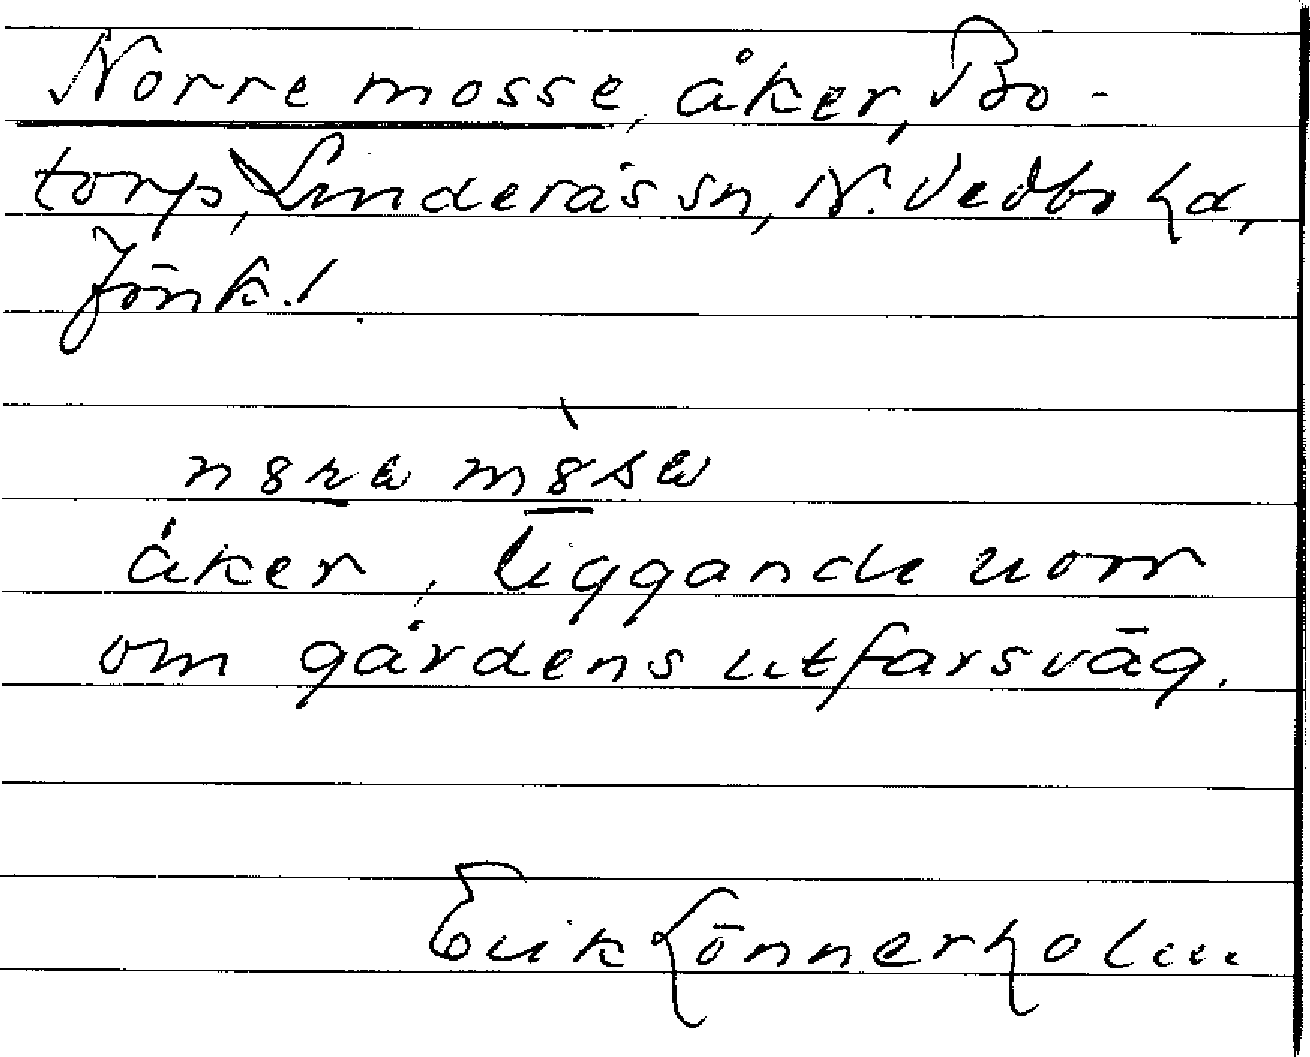 Norre mosse, åker, Bo-
torp, Linderås sn, N. Vedbo hd,
Jönk. l.
åker, liggande norr
om gårdens utfarsväg.
Erik Lönnerholm